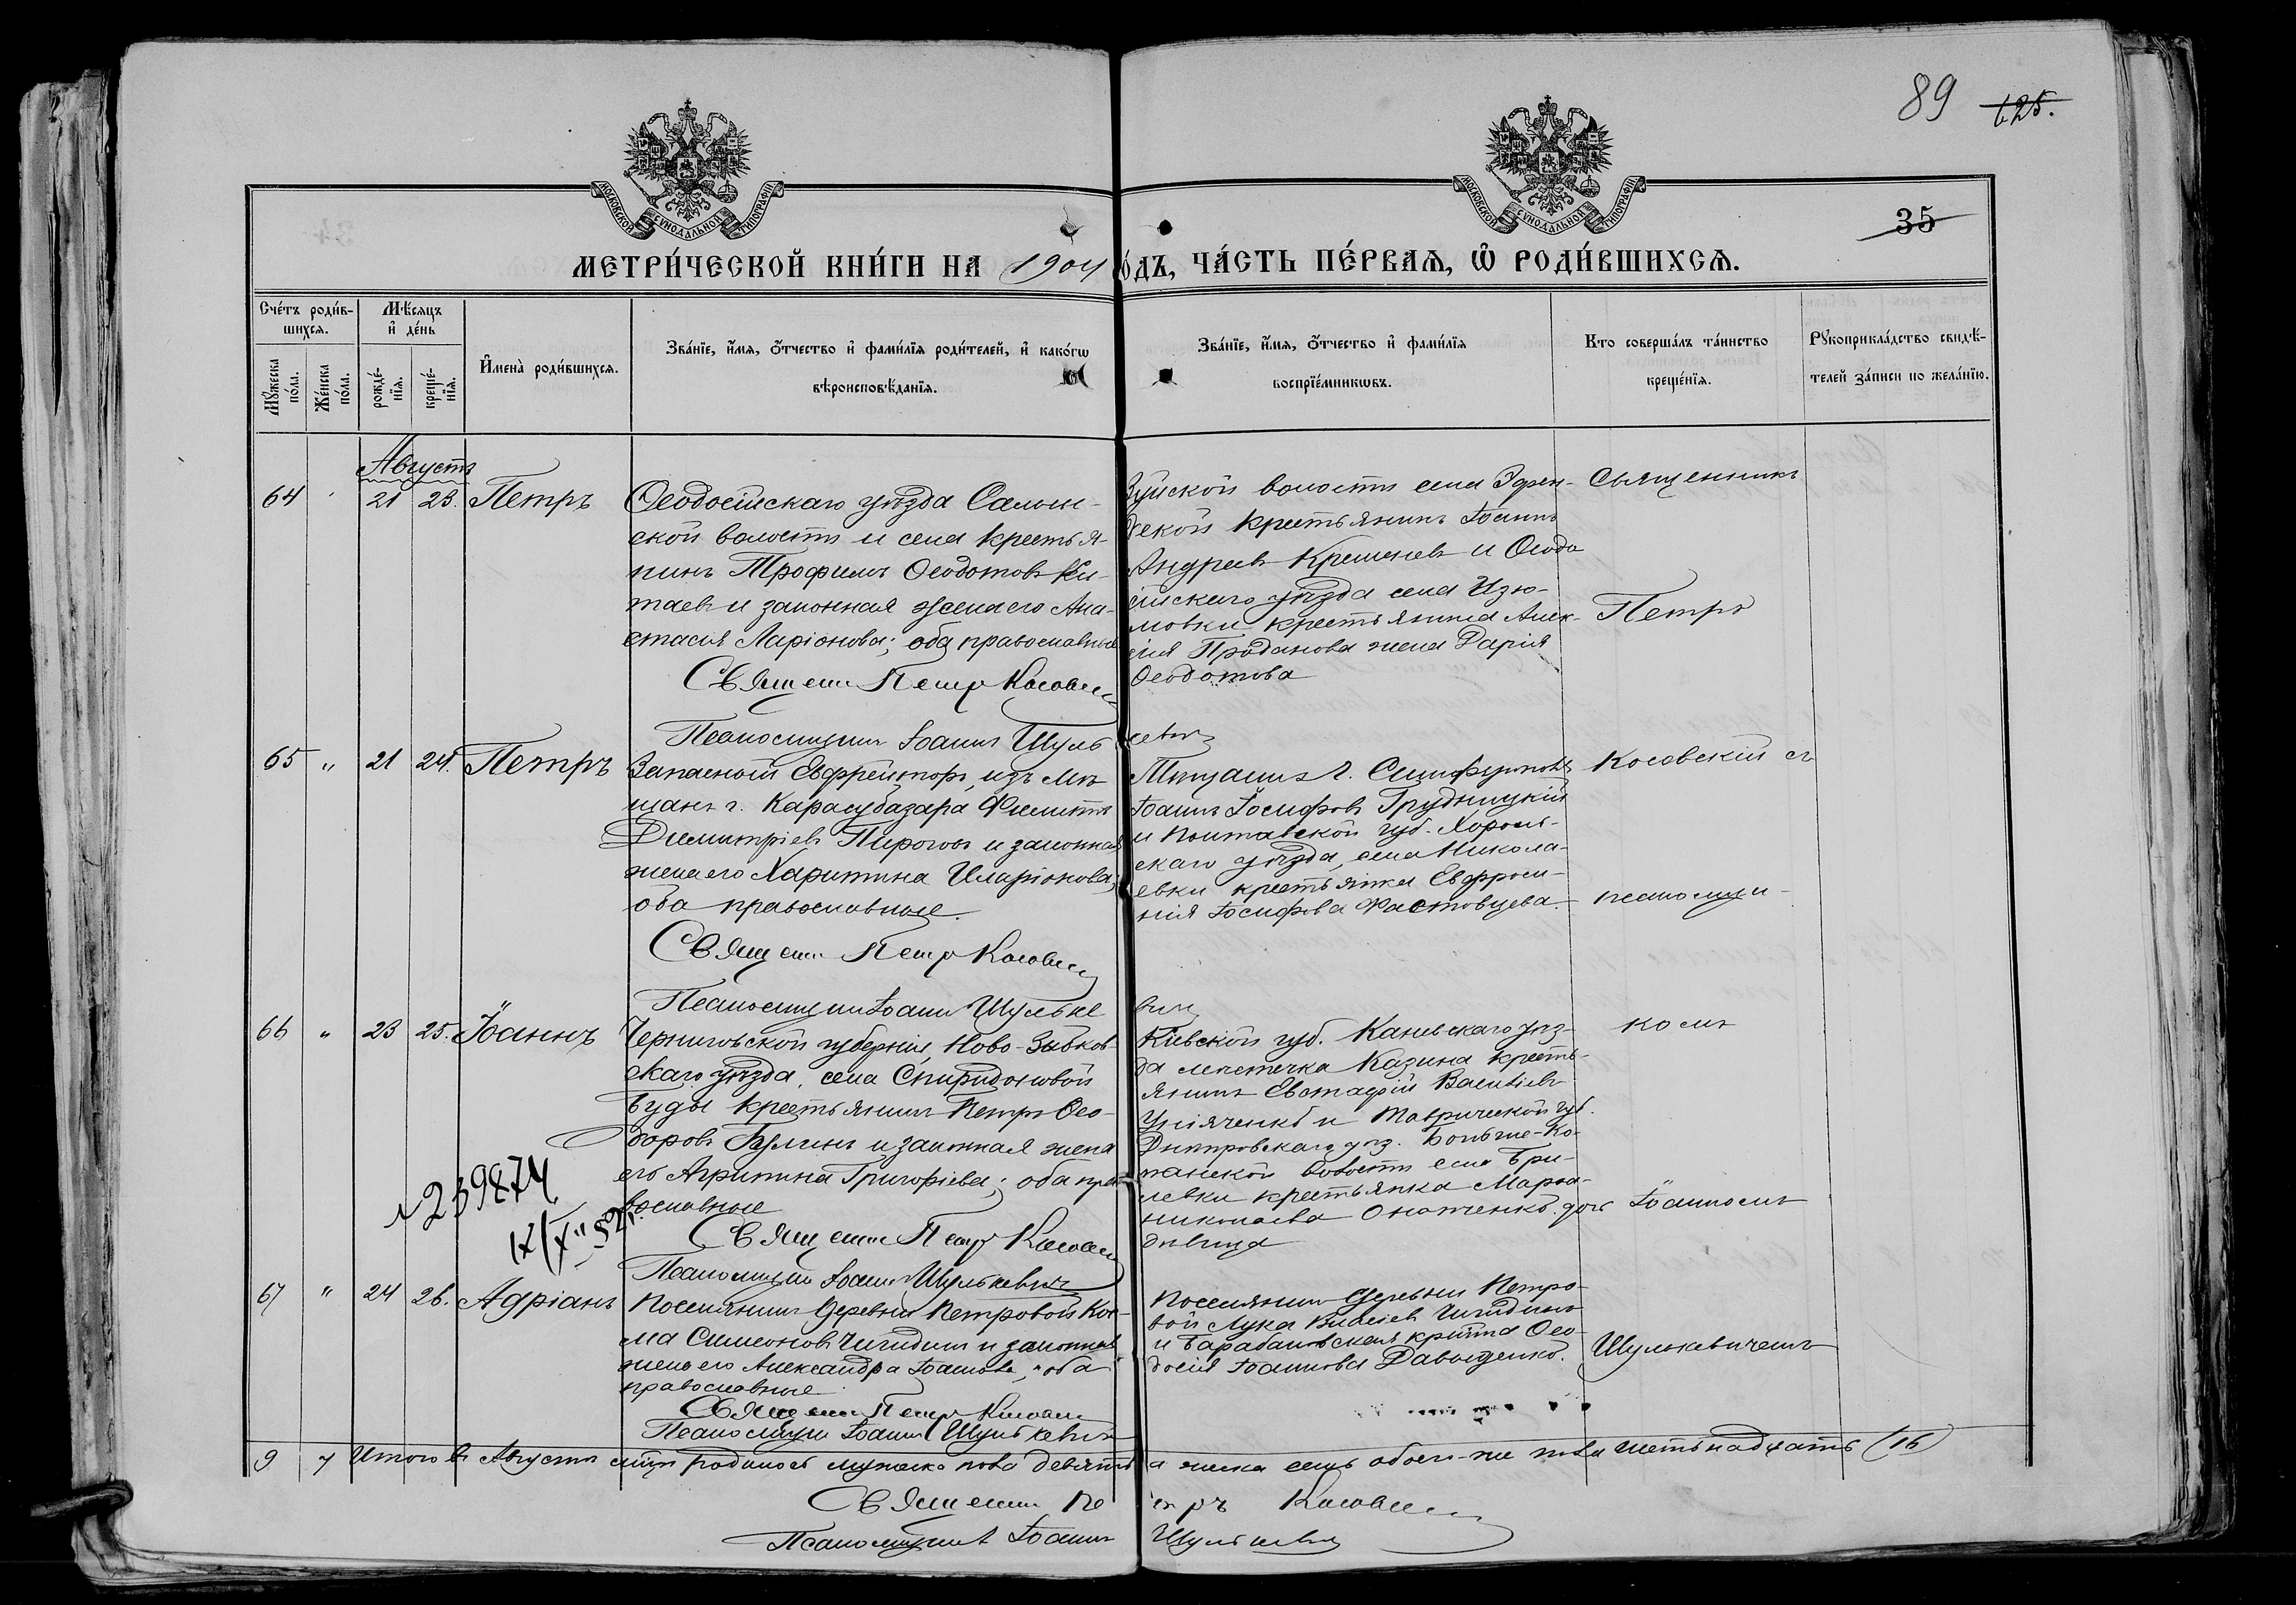 89 125.
МОСКОВСКОЙ СѴНОДАЛЬНОЙ ТИПОГРАФІИ
МОСКОВСКОЙ СѴНОДАЛЬНОЙ ТИПОГРАФІИ
35
МЕТРИ́ЧЕСКОЙ КНИ́ГИ НА 1904 ГО́ДЪ, ЧА́СТЬ ПЕ́РВАѦ, Ѡ РОДИ́ВШИХСѦ.
Сче́тъ роди́в-
шихсѧ.
Мꙋ́жеска по́ла.
Же́нска по́ла.
Мѣ́сѧцъ
и де́нь
рожде́-
нїѧ.
креще́-
нїѧ.
Имена̀ роди́вшихсѧ.
Зва́нїе, и́мѧ, о́тчество и фами́лїѧ роди́телей, и како́гѡ
вѣроисповѣ́данїѧ.
Зва́нїе, и́мѧ, о́тчество и фами́лїѧ
воспрїе́мникѡвъ.
Кто соверша́лъ та́инство
креще́нїѧ.
Рꙋкоприкла́дство свидѣ́-
телей за́писи по жела́нїю.
Августъ
64 21 23. Петръ
Ѳеодосійскаго уѣзда Салын-
ской волости и села крестья-
нинъ Трофимъ Ѳеодотовъ Ки-
таевъ и законная жена его Ана-
стасія Ларіонова; оба православные
Священ Петръ Косовскій
Псаломщикъ Іоаннъ Шулькевичъ
Зуйской волости села Эфен-
дской крестьянинъ Іоаннъ
Андреевъ Кременевъ и Ѳеодо
сійскаго уѣзда села Изю-
мовки крестьянина Алек-
сія Проданова жена Дарія
Ѳеодотова
Священникъ
Петръ
65 „ 21 24. Петръ
Запасной Ефрейторъ, изъ мѣ-
щанъ г. Карасубазара Филиппъ
Димитріевъ Пироговъ и законная
жена его Харитина Иларіонова,
оба православные.
Священ Петръ Косовскій
Псаломщикъ Іоаннъ Шулькевичъ
Мѣщанинъ г. Симферополя
Іоаннъ Іосифовъ Грудницкій
и Полтавской губ. Хороль-
скаго уѣзда, села Никола-
евки крестьянка Евфроси-
нія Іосифова Фастовцева.
Косовскій съ
псаломщи-
66 „ 23 25. Іоаннъ
Черниговской губерніи, Ново-Зыбков-
скаго уѣзда, села Спиридоновой
Буды крестьянинъ Петръ Ѳео-
доровъ Булинъ и законная жена
его Агрипина Григоріева; оба пра-
вославные
Священ Петръ Косовскій
Псаломщикъ Іоаннъ Шулькевичъ
Кіевской губ. Каневскаго уѣз-
да мѣстечка Казина кресть-
янинъ Евстафій Васильевъ
и Таврической губ.
Днѣпровскаго уѣз. Больше-Ко-
панской волости села Бри-
левки крестьянка Марѳа
Николаева дочь
дѣвица
комъ
Іоанномъ
№ 239874
67 „ 24 26. Адріанъ
Поселянинъ деревни Петровой Кос-
ма Симеоновъ Чигидинъ и законная
жена его Александра Іоаннова, оба
православные
Священ Петръ Косовскій
Псаломщикъ Іоаннъ Шулькевичъ
Поселянинъ деревни Петро-
вой Лука Чигидинъ
и Барабановская кр-нка Ѳео-
досія Іоаннова Давыденко.
Шулькевичемъ
9 7 Итого въ Августѣ м-цѣ родилось мужеска пола девять а женска семь обоего же пола шестьнадцать (16)
Священникъ Петръ Косовскій
Псаломщикъ Іоаннъ Шулькевичъ